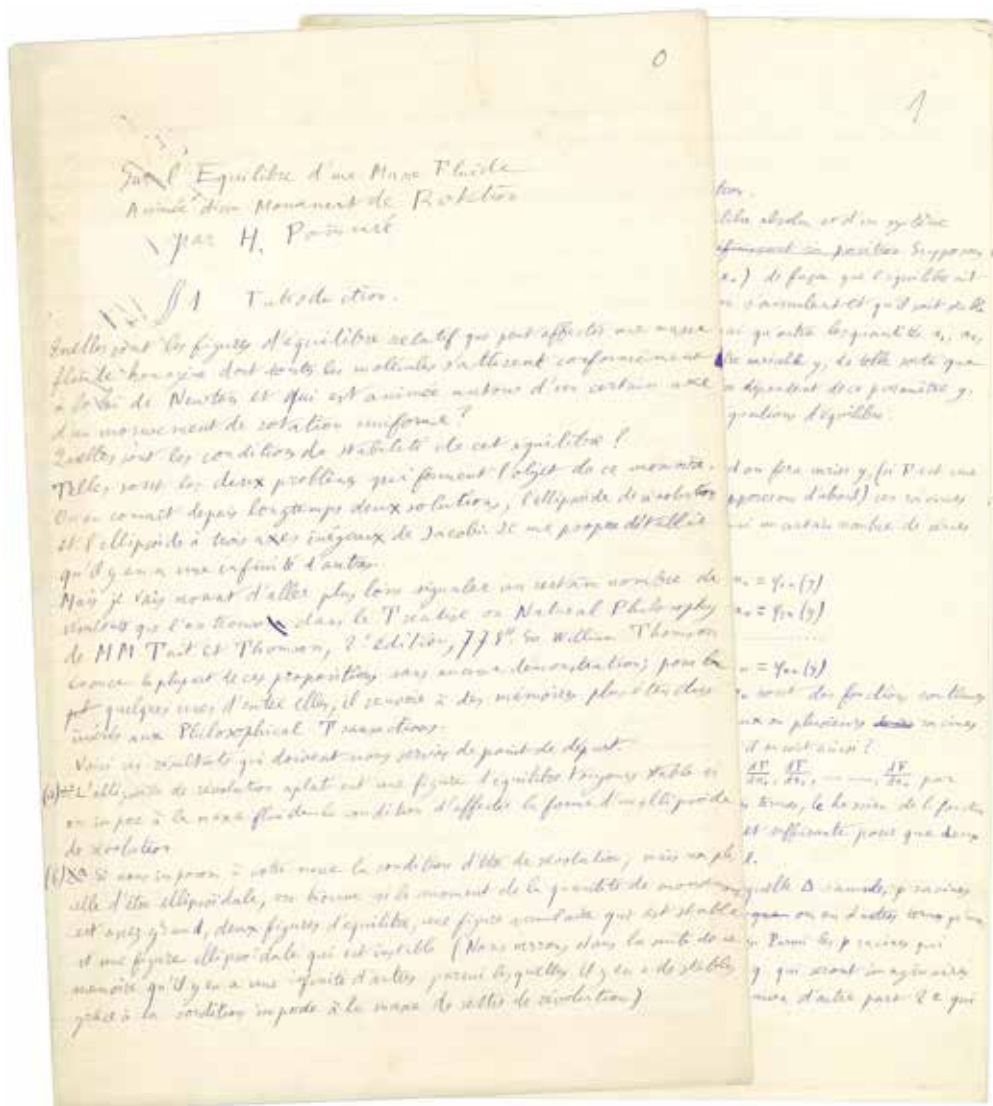 0
Sur l'Equilibre d'une Masse Fluide
Animée d'un Mouvement de Rotation
par H. Poincaré
§ 1 Introduction.
Quelles sont les figures d'équilibre relatif que peut affecter une masse
fluide homogène dont toutes les molécules s'attirent conformément
à la loi de Newton et qui est animée autour d'un certain axe
d'un mouvement de rotation uniforme?
Quelles sont les conditions de stabilité de cet équilibre?
Telles sont les deux problèmes qui forment l'objet de ce mémoire.
On en connait depuis longtemps deux solutions, l'ellipsoïde de révolution
et l'ellipsoïde à trois axes inégaux de Jacobi. Je me propose d'établir
qu'il y en a une infinité d'autres.
Mais je vais avant d'aller plus loin signaler un certain nombre de
résultats que l'on trouve dans le Treatise on Natural Philosophy
de MM Tait et Thomson, 2e édition, 778". Sir William Thomson
énonce la plupart de ces propositions sans aucune démonstration; pour
quelques unes d'entre elles, il renvoie à des mémoires plus étendus
insérés aux Philosophical Transactions.
Voici ces résultats qui doivent nous servir de point de départ.
(a) L'ellipsoïde de révolution aplati est une figure d'équilibre toujours stable si
on impose à la masse fluide la condition d'affecter la forme d'un ellipsoïde
de révolution
(b) Si nous imposons à notre masse la condition d'être de révolution, mais non pas
celle d'être ellipsoïdale, on trouve si le moment de la quantité de mouvement
est assez grand, deux figures d'équilibre, une figure annulaire qui est stable
et une figure ellipsoïdale qui est instable (Nous verrons dans la suite de ce
mémoire qu'il y en a une infinité d'autres parmi lesquelles il y en a de stables
grâce à la condition imposée à la masse de rester de révolution)
1
libre absolu et d'un système
définissent sa position Supposons
) de façon que l'équilibre ait
s'annulent et qu'il soit stable
qu'outre les quantités x₁, x₂,
variable y, de telle sorte que
dépendent de ce paramètre y.
équations d'équilibre.
on fera varier y, (si F est une
supposerons d'abord) ces racines
un certain nombre de séries
= φ (y)
= φ (y)
= φ (y)
sont des fonctions continues
ou plusieurs racines
il en soit ainsi?
dF/dx, dF/dx, ... , dF/dx par
termes, le hessien de la fonction
et suffisante pour que deux
quelle Δ s'annule, p racines
on en d'autres termes
Parmi les p racines qui
y qui seront imaginaires
d'autre part 2 e qui